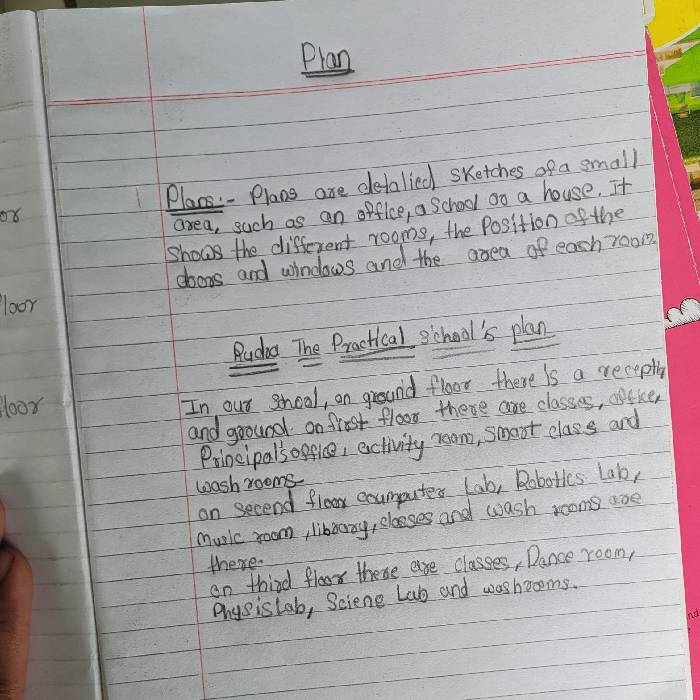 Plan
Plans:- Plans are detalied sketches of a small
area, such as an office, a school or a house. It
shows the different rooms, the position of the
doors and windows and the area of each room
Rudra The Practical school's plan
In our shcoal, on ground floor there is a recepthi
and ground. on first floor there are classes, office,
Principal's office, activity room, smart class and
wash rooms
on second floor coumputer Lab, Robotics Lab,
Music room, library, classes and wash rooms are
there.
on third floor there are classes, Dance room,
Physis Lab, Sciene Lab and washrooms.
or
loor
floor
nd